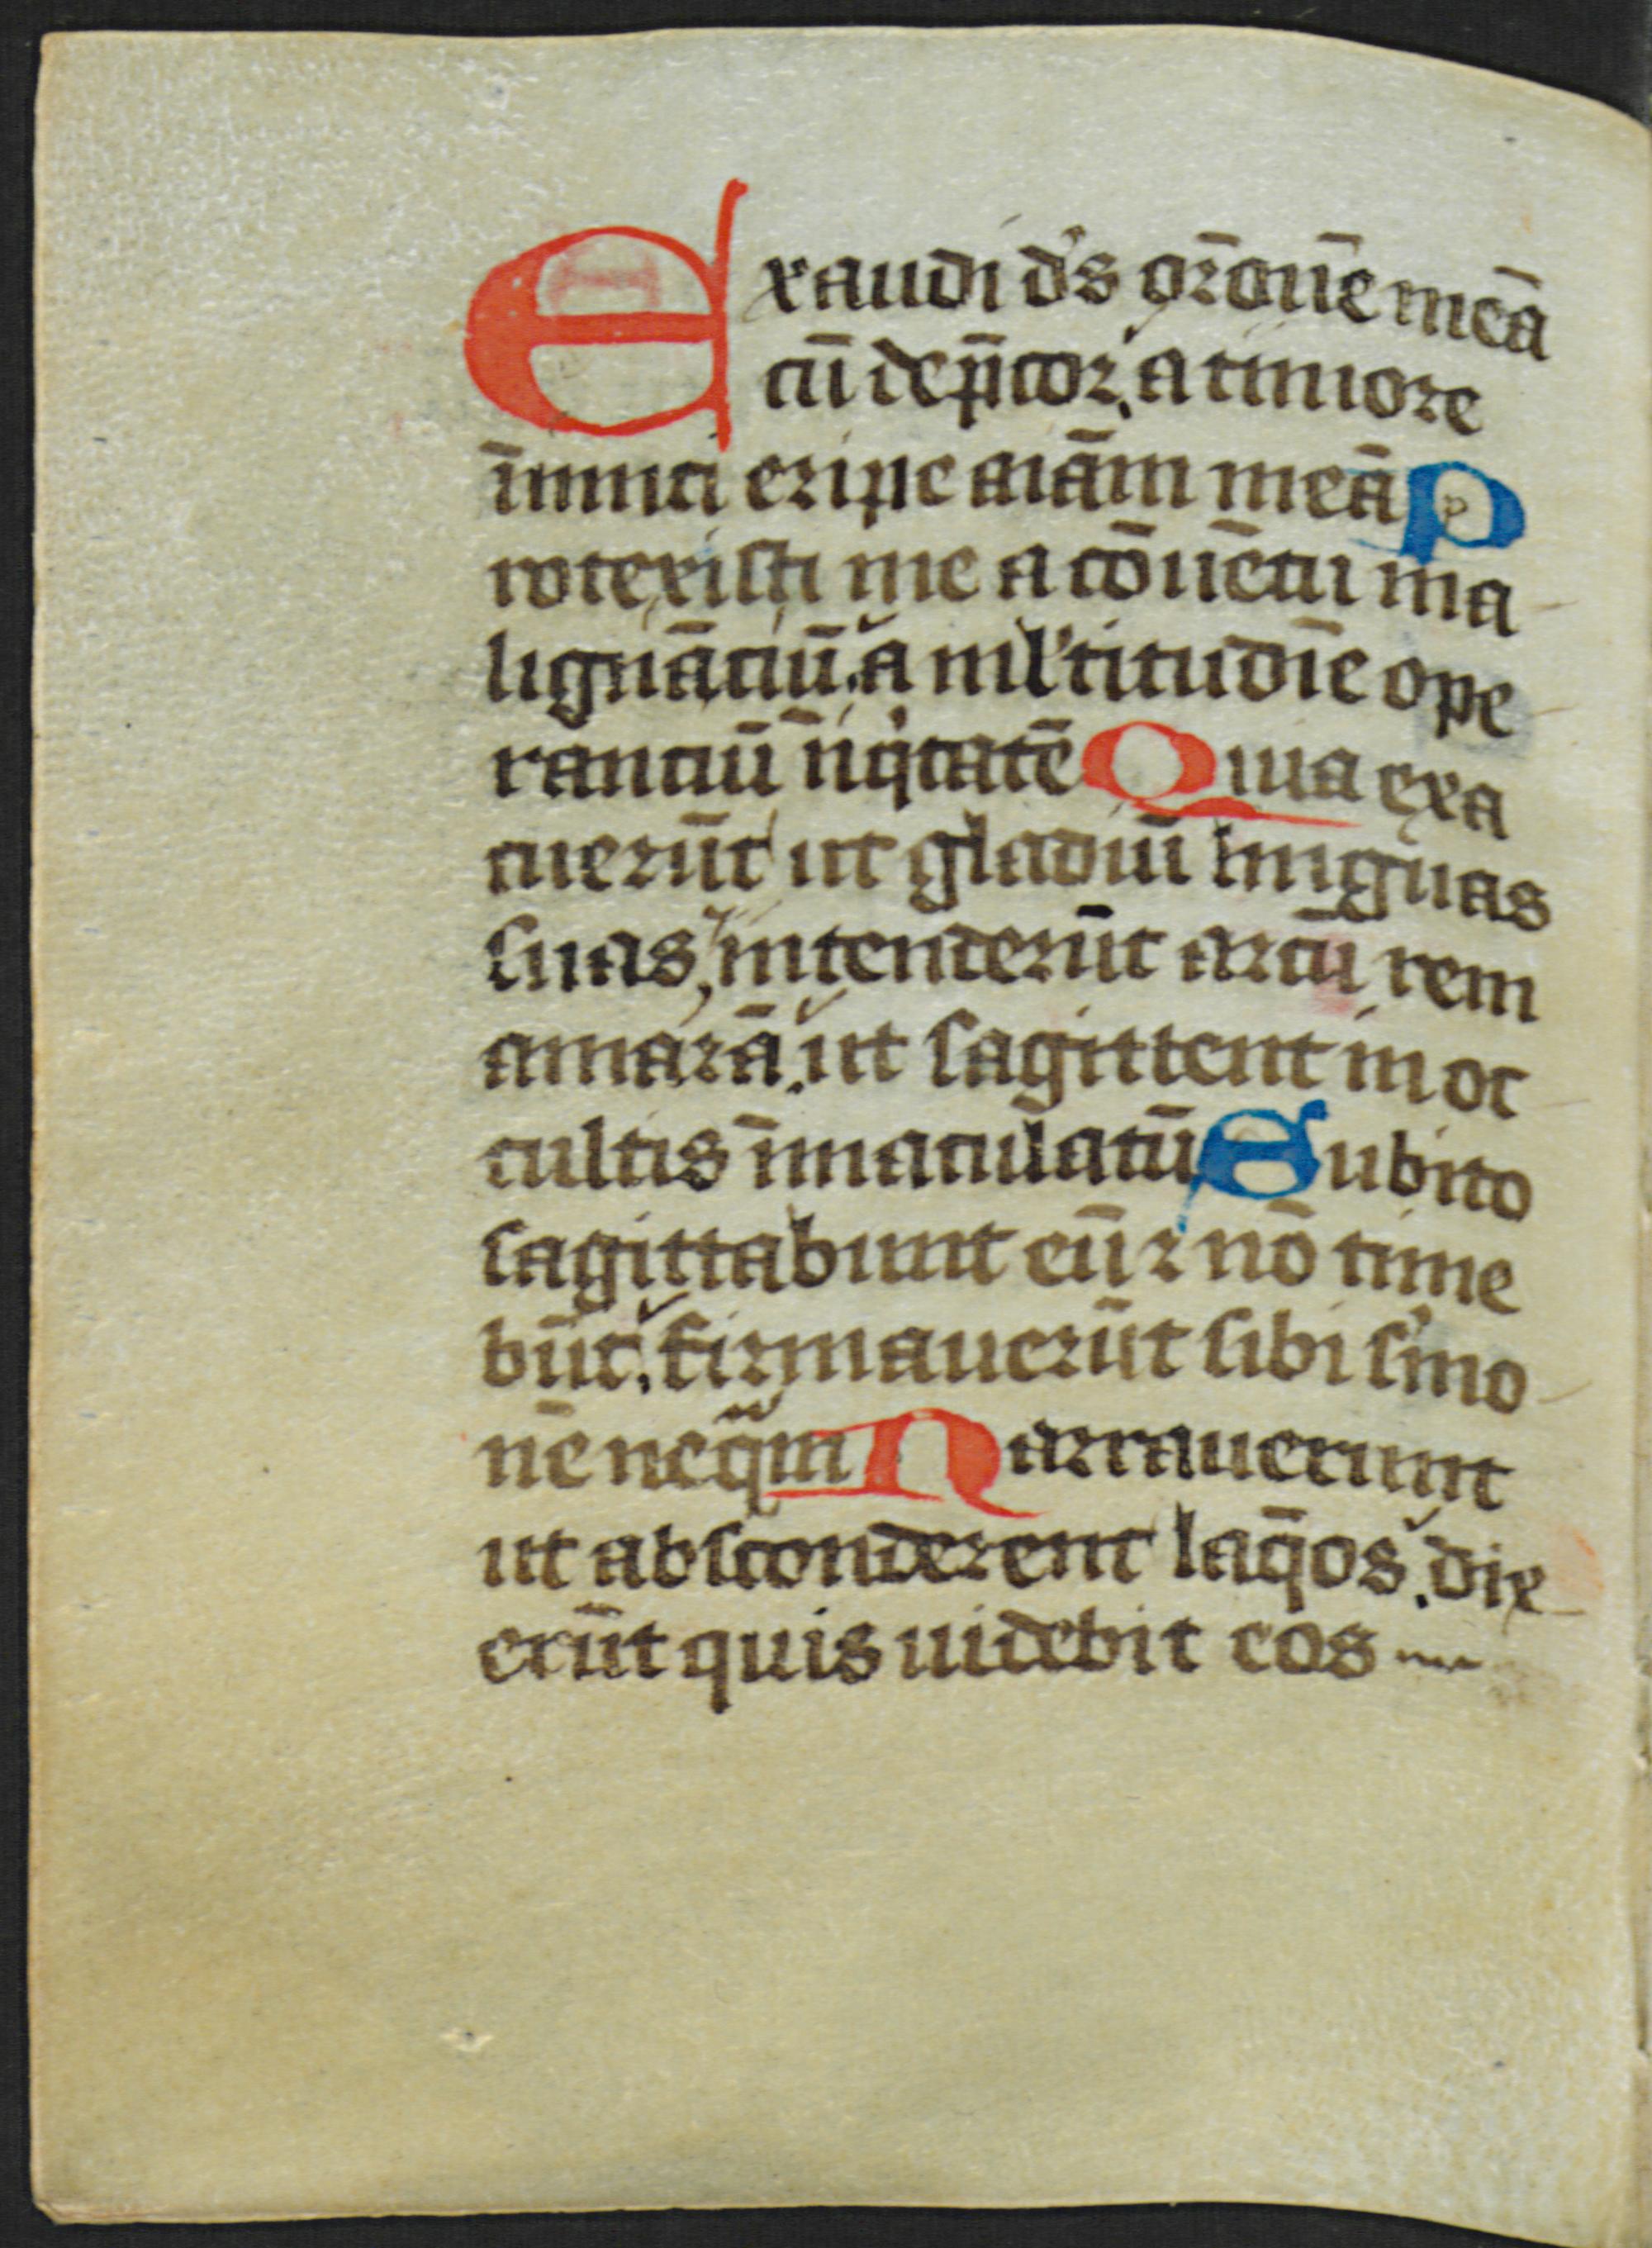 Exaudi ds̄ or̄onē meā
cū dep̄cor, a timore
īimici eripe aīam meā P
rotexisti me a cōuētu ma
lignāciū, a ml'titudīe ope
ranciū īiq̇tatē Quia exa
cuerūt ut gladiū linguas
suas, intenderūt arcū rem
amarā, ut sagittent in oc
cultis īmaculatū Subito
sagittabunt eū ⁊ nō time
būt, firmauerūt sibi s'mo
nē neq̄m Narrauerunt
ut absconderent laq̄os, dix
erūt quis uidebit eos